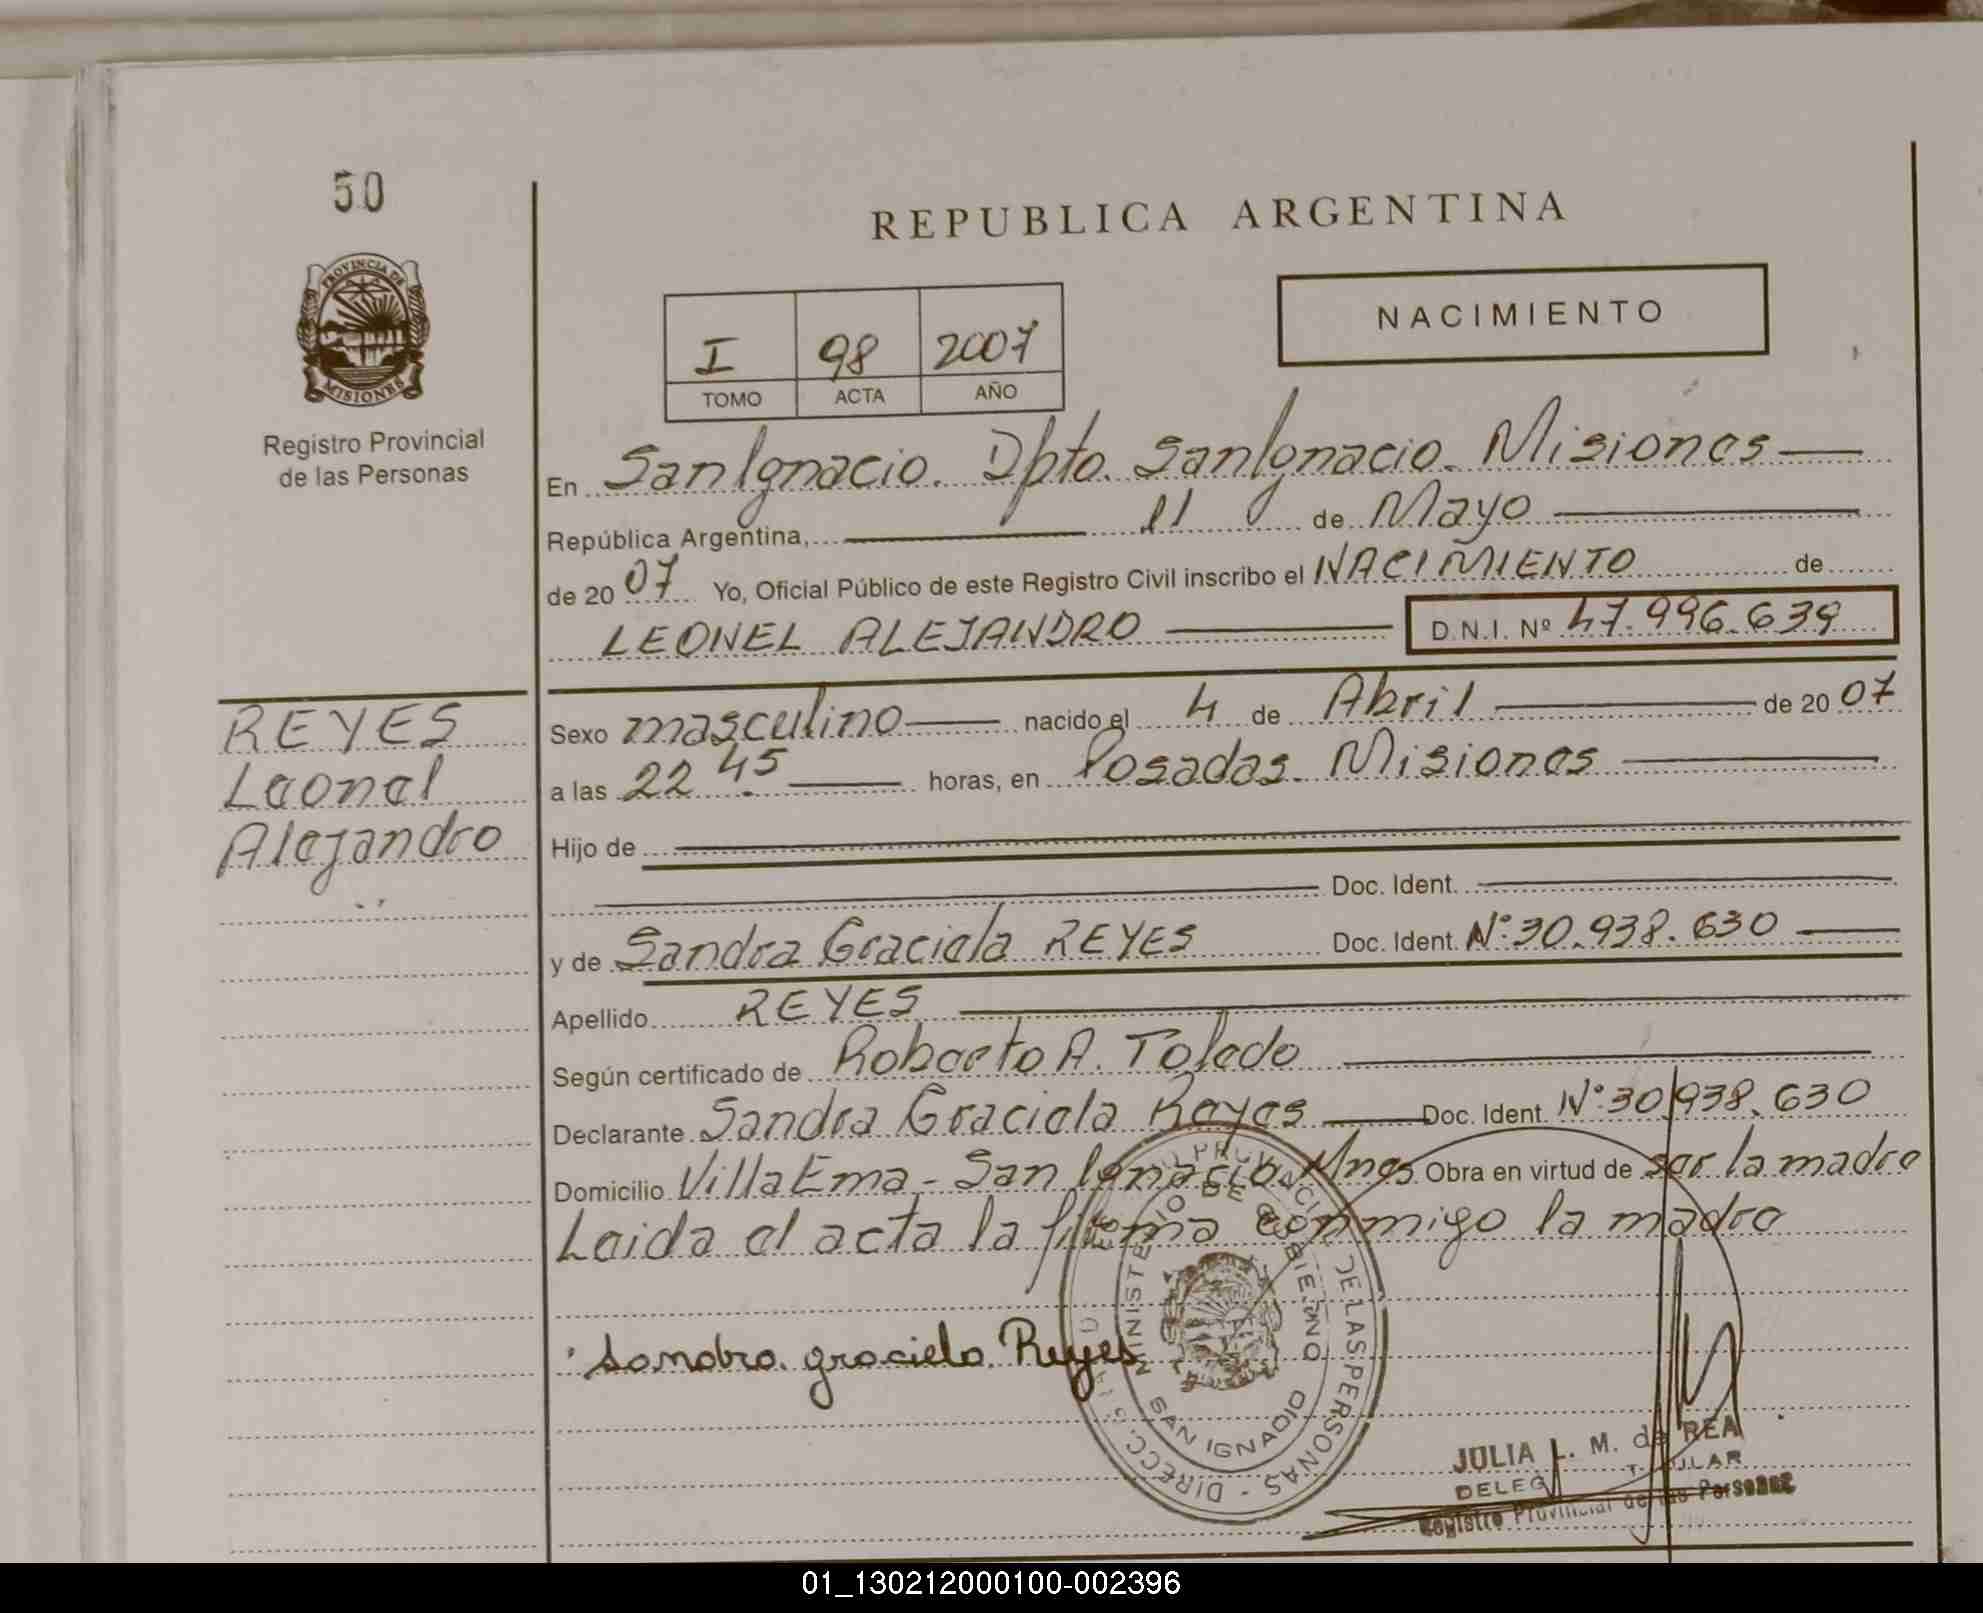 50
REPUBLICA ARGENTINA
PROVINCIA DE
MISIONES
NACIMIENTO
I 98 2007
TOMO ACTA AÑO
Registro Provincial
de las Personas
En San Ignacio. Dpto. San Ignacio. Misiones
República Argentina, 11 de Mayo
de 2007 Yo, Oficial Público de este Registro Civil inscribo el NACIMIENTO de
LEONEL ALEJANDRO D.N.I. Nº 47.996.639
REYES
Leonel
Alejandro
Sexo masculino nacido el 4 de Abril de 2007
a las 22.45 horas, en Posadas. Misiones
Hijo de
Doc. Ident.
y de Sandra Graciela REYES Doc. Ident. Nº:30.938.630
Apellido REYES
Según certificado de Roberto A. Toledo
Declarante Sandra Graciela Reyes Doc. Ident. Nº:30.938.630
Domicilio Villa Ema - San Ignacio Mnes Obra en virtud de ser la madre
Leida el acta la firma conmigo la madre
sandra graciela Reyes
MINISTERIO DE GOBIERNO
SAN IGNACIO
DE LAS PERSONAS - DIRECC.
JULIA L. M. de REA
Registro Provincial de las Personas
01_130212000100-002396